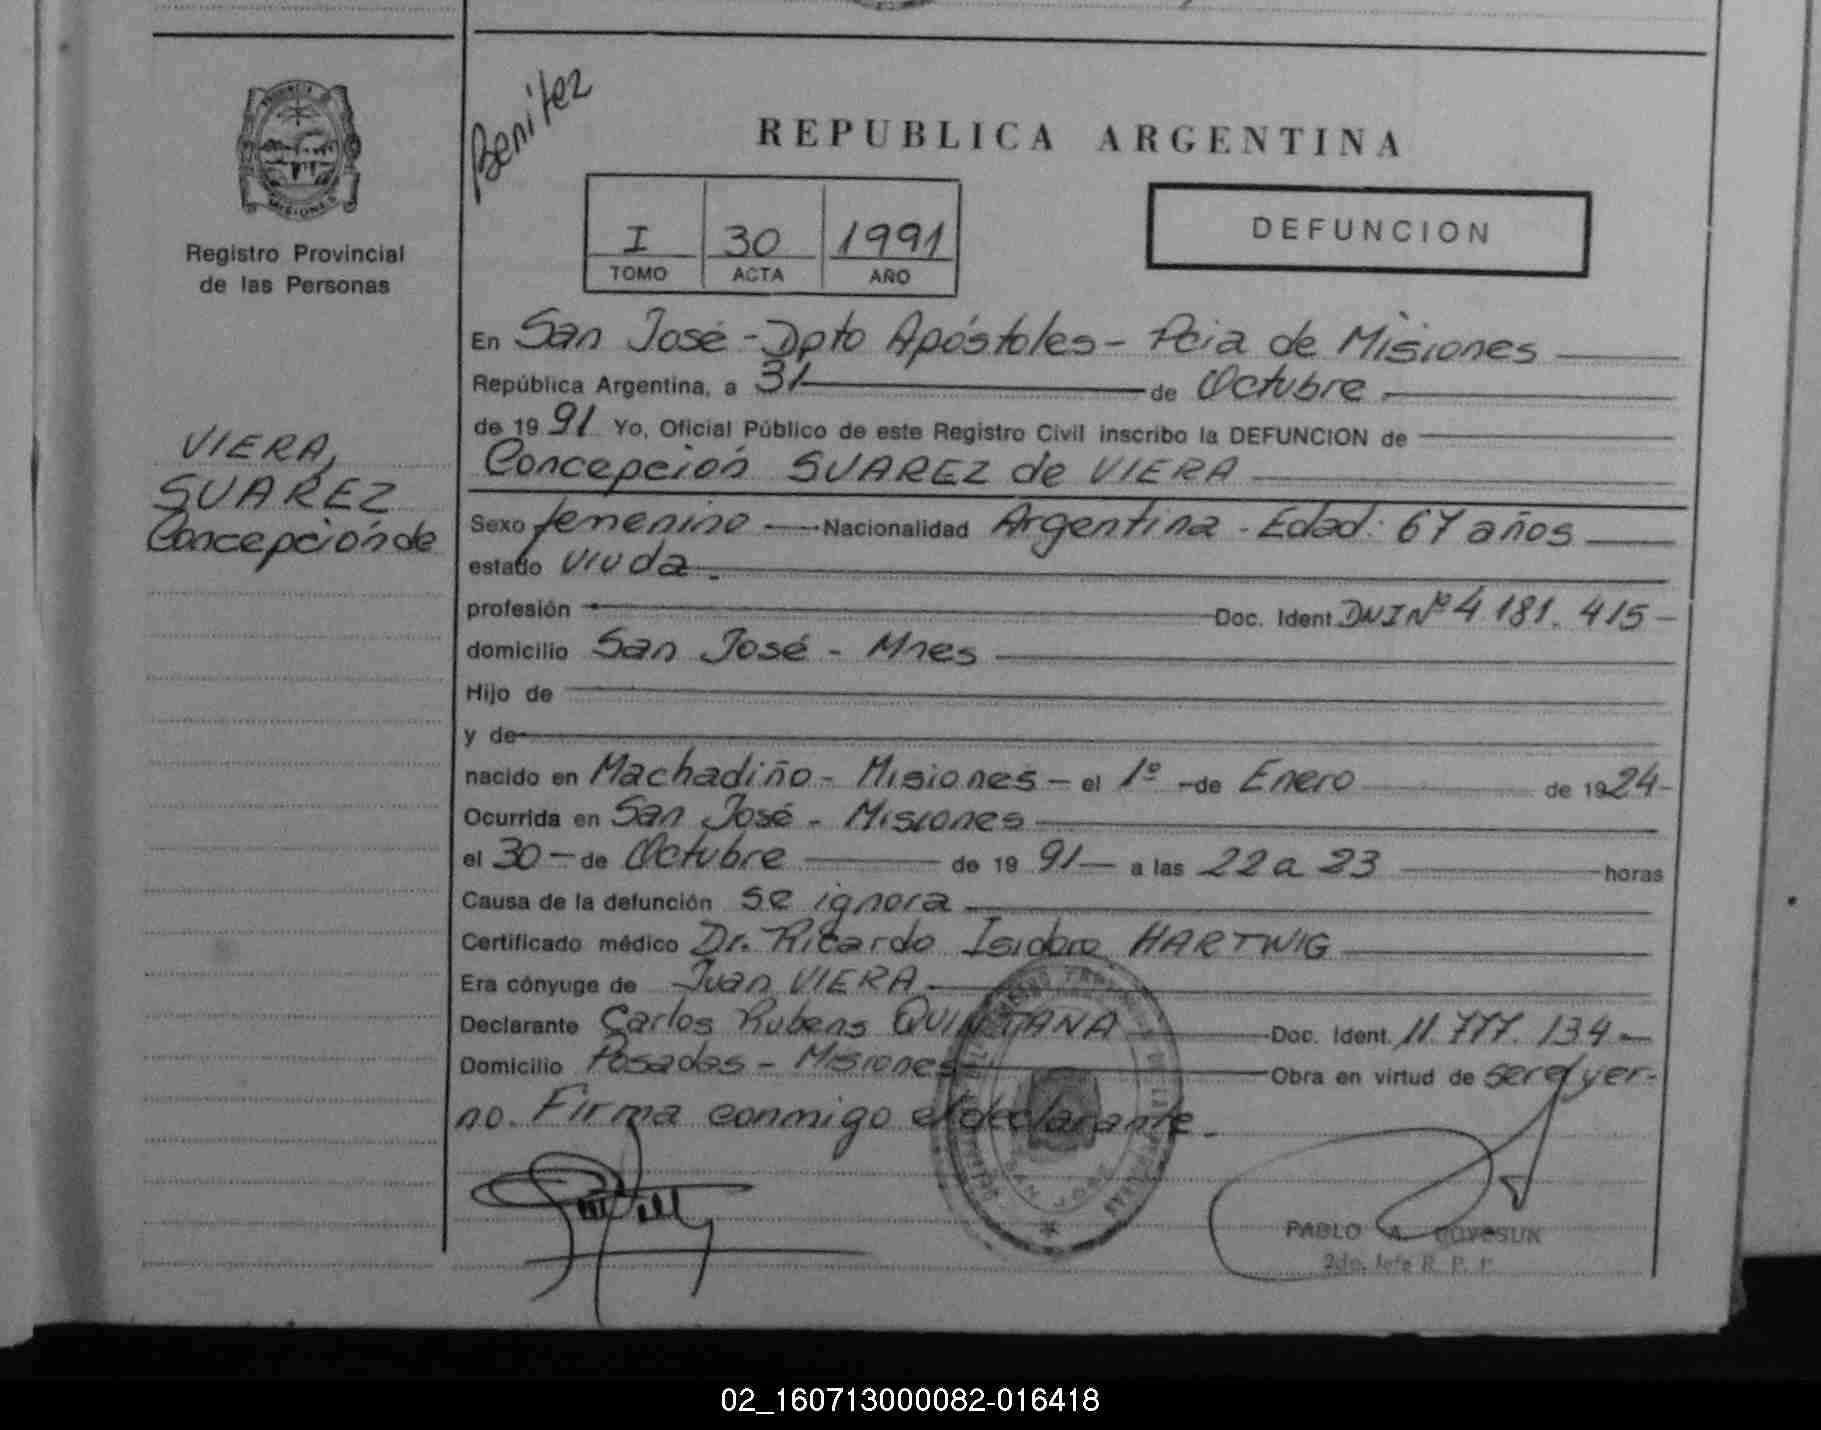 Benitez
REPUBLICA ARGENTINA
PROVINCIA
MISIONES
Registro Provincial
de las Personas
I 30 1991
TOMO ACTA AÑO
DEFUNCION
En San José - Dpto Apóstoles - Pcia de Misiones
República Argentina, a 31 de Octubre
de 19 91 Yo, Oficial Público de este Registro Civil inscribo la DEFUNCION de
Concepción SUAREZ de VIERA
VIERA,
SUAREZ
Concepción de
Sexo femenino Nacionalidad Argentina - Edad: 67 años
estado viuda.
profesión Doc. Ident DNI Nº 4 181. 415 -
domicilio San José - Mnes
Hijo de
y de
nacido en Machadiño - Misiones - el 1º - de Enero de 1924-
Ocurrida en San José - Misiones
el 30 - de Octubre de 19 91 - a las 22 a 23 horas
Causa de la defunción se ignora
Certificado médico Dr. Ricardo Isidoro HARTWIG
Era cónyuge de Juan VIERA
Declarante Carlos Rubens QUINTANA Doc. Ident. 11.777.134 -
Domicilio Posadas - Misiones Obra en virtud de ser el yer-
no. Firma conmigo el declarante.
SAN JOSE
PABLO A.
2do. Jefe R. P. P.
02_160713000082-016418